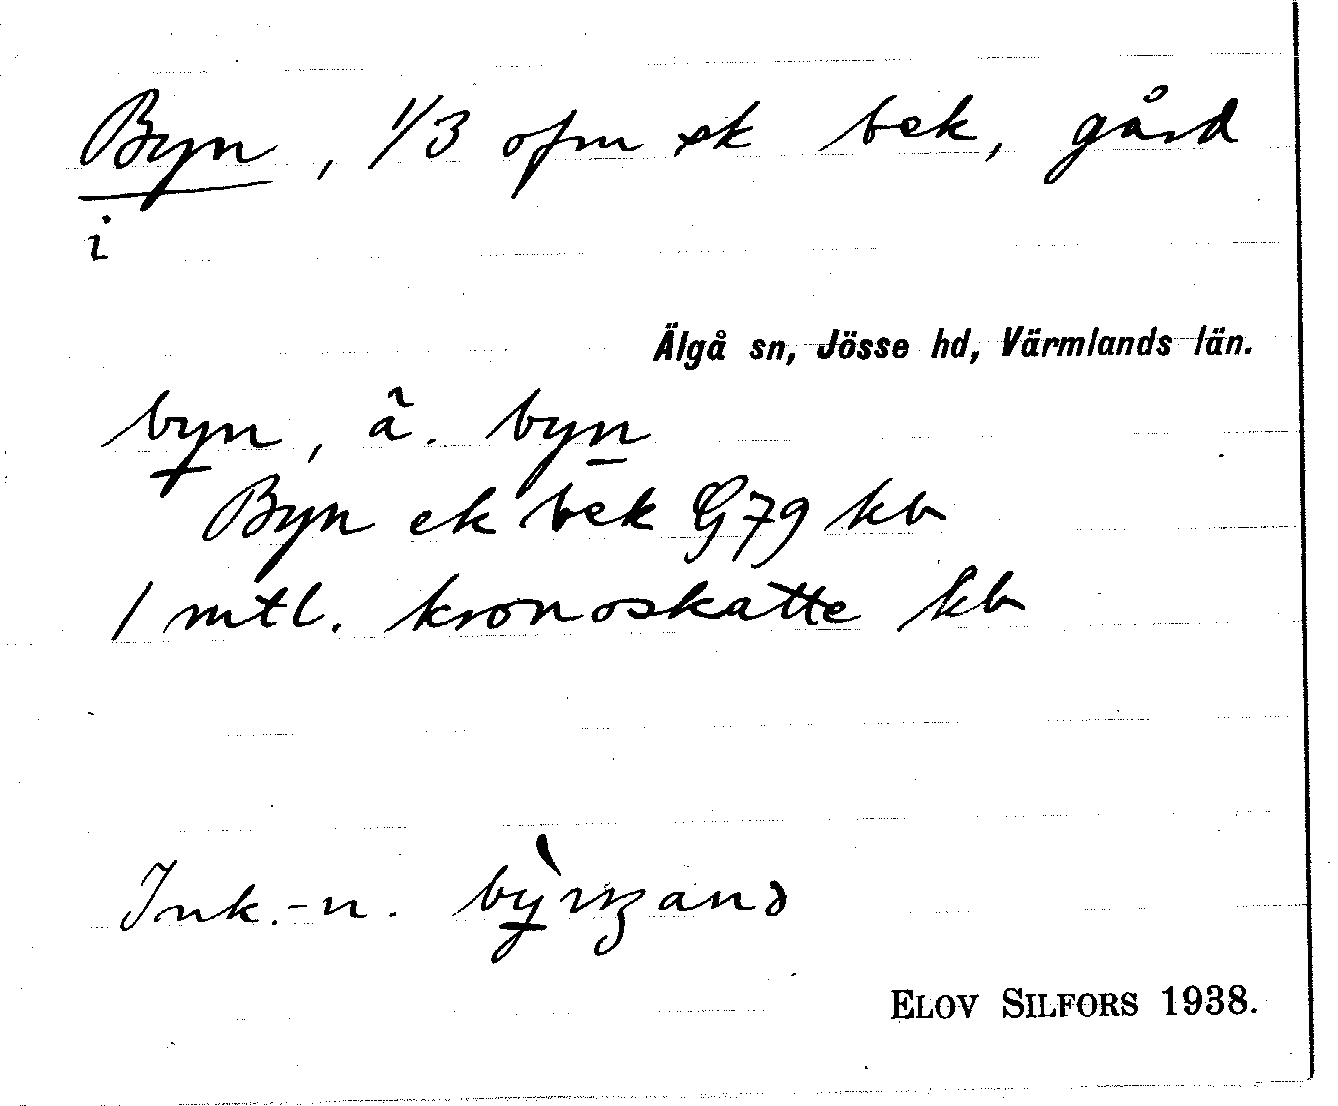 Byn, 1/3 ofm sk bek, gård
i
Älgå sn, Jösse hd, Värmlands län.
byn, ä. byn
Byn ek bek G79 kb
1 mtl. kronoskatte kb
Ink.-n.
ELOV SILFORS 1938.